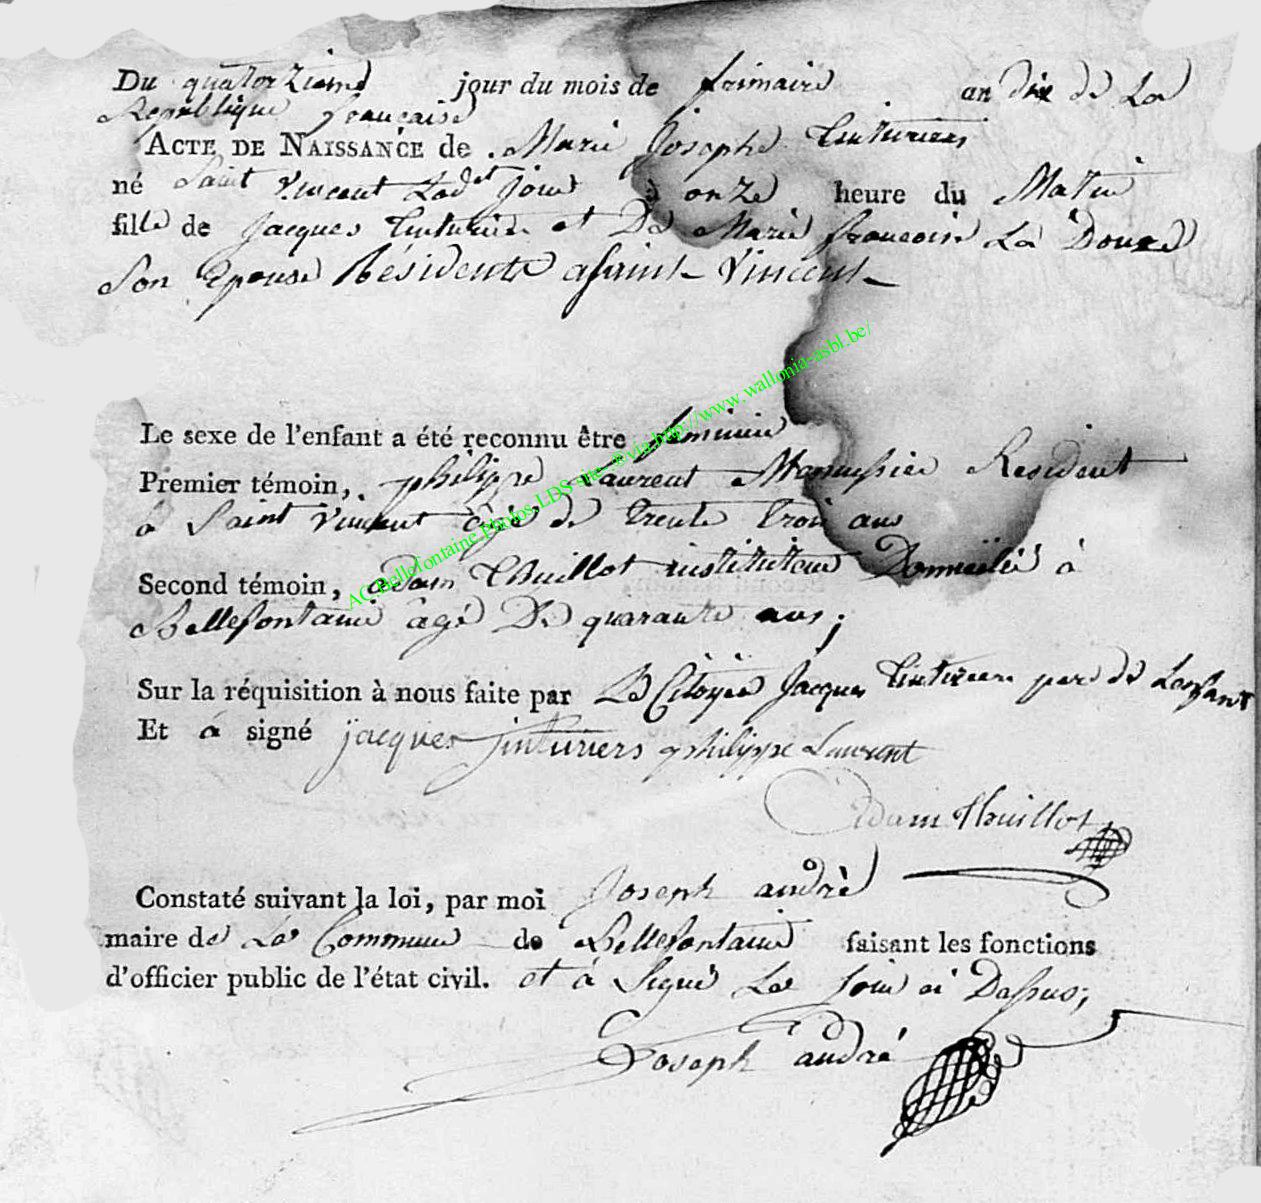 Du quatorzieme jour du mois de frimaire an dix de La
Republique francaise
ACTE DE NAISSANCE de Marie Josephe Tinturiers
né Saint Vincent Led et Jour à onze heure du Matin
fille de Jacques Tinturier et De Marie francoise La Douce
Son Epouse Résidente a saint Vincent
Le sexe de l'enfant a été reconnu être feminin
Premier témoin, philippe Laurent Menussier Resident
à Saint Vincent âgé de trente trois ans
Second témoin, adam Thuillot instituteur Domicilié à
Bellefontaine âgé De quarante ans;
Sur la réquisition à nous faite par Le Citoyen Jacques Tinturier pere de Lenfant
Et à signé jacques Tinturiers philippe Laurent
Adam Thuillot
Constaté suivant la loi, par moi Joseph andré
maire de La Commune de Bellefontaine faisant les fonctions
d'officier public de l'état civil. et à Signé Les Jour ai Dessus;
Joseph andré
AC Bellefontaine Photos LDS site @via http://www.wallonia-asbl.be/